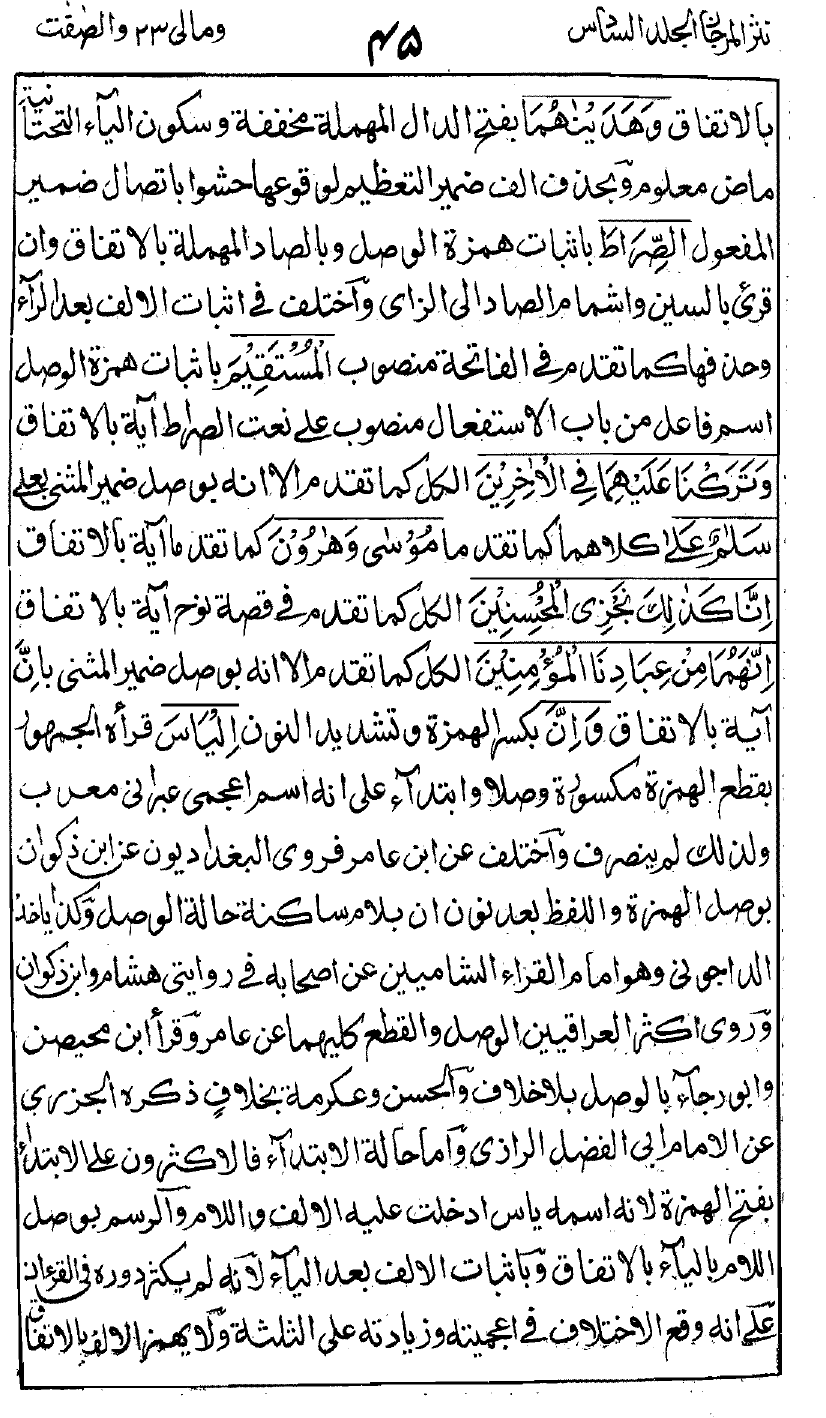 نثر المرجان الجلد السادس
۴۵
ومالی ۲۳ والصّٰفّٰت
بالاتفاق وَهَدَيْنٰهُمَا بفتح الدال المهملة مخففة وسكون الياء التحتانية
ماض معلوم وبحذف الف ضمير التعظيم لوقوعها حشوا باتصال ضمير
المفعول الصِّرَاطَ باثبات همزة الوصل وبالصاد المهملة بالاتفاق وان
قرئ بالسين واشمام الصاد الى الزاى واختلف فى اثبات الالف بعد الرآء
وحذفها كما تقدم فى الفاتحة منصوب الْمُسْتَقِيْمَ باثبات همزة الوصل
اسم فاعل من باب الاستفعال منصوب على نعت الصراط آية بالاتفاق
وَتَرَكْنَا عَلَيْهِمَا فِي الْاٰخِرِيْنَ الكل كما تقدم الا انه بوصل ضمير المثنى بعلى
سَلٰمٌ عَلٰى كلاهما كما تقدما مُوْسٰى وَهٰرُوْنَ كما تقدما آية بالاتفاق
اِنَّا كَذٰلِكَ نَجْزِى الْمُحْسِنِيْنَ الكل كما تقدم فى قصة نوح آية بالاتفاق
اِنَّهُمَا مِنْ عِبَادِنَا الْمُؤْمِنِيْنَ الكل كما تقدم الا انه بوصل ضمير المثنى بانَّ
آية بالاتفاق وَاِنَّ بكسر الهمزة وتشديد النون اِلْيَاسَ قرأه الجمهور
بقطع الهمزة مكسورة وصلا وابتدآء على انه اسم اعجمى عبرانى معرب
ولذلك لم ينصرف واختلف عن ابن عامر فروى البغداديون عن ابن ذكوان
بوصل الهمزة واللفظ بعد نون ان بلام ساكنة حالة الوصل وكذا ياخذ
الداجونى وهو امام القراء الشاميين عن اصحابه فى روايتى هشام وابن ذكوان
وروى اكثر العراقيين الوصل والقطع كليهما عن عامر وقرأ ابن محيصن
وابو رجآء بالوصل بلاخلاف والحسن وعكرمة بخلافٍ ذكره الجزرى
عن الامام ابى الفضل الرازى واما حالة الابتدآء فالاكثرون على الابتدآء
بفتح الهمزة لانه اسمه ياس ادخلت عليه الالف واللام والرسم بوصل
اللام بالياء بالاتفاق وباثبات الالف بعد اليآء لانه لم يكثر دوره فى القرءان
على انه وقع الاختلاف فى اعجميته وزيادته على الثلثة ولا يهمز الالف بالاتفاق